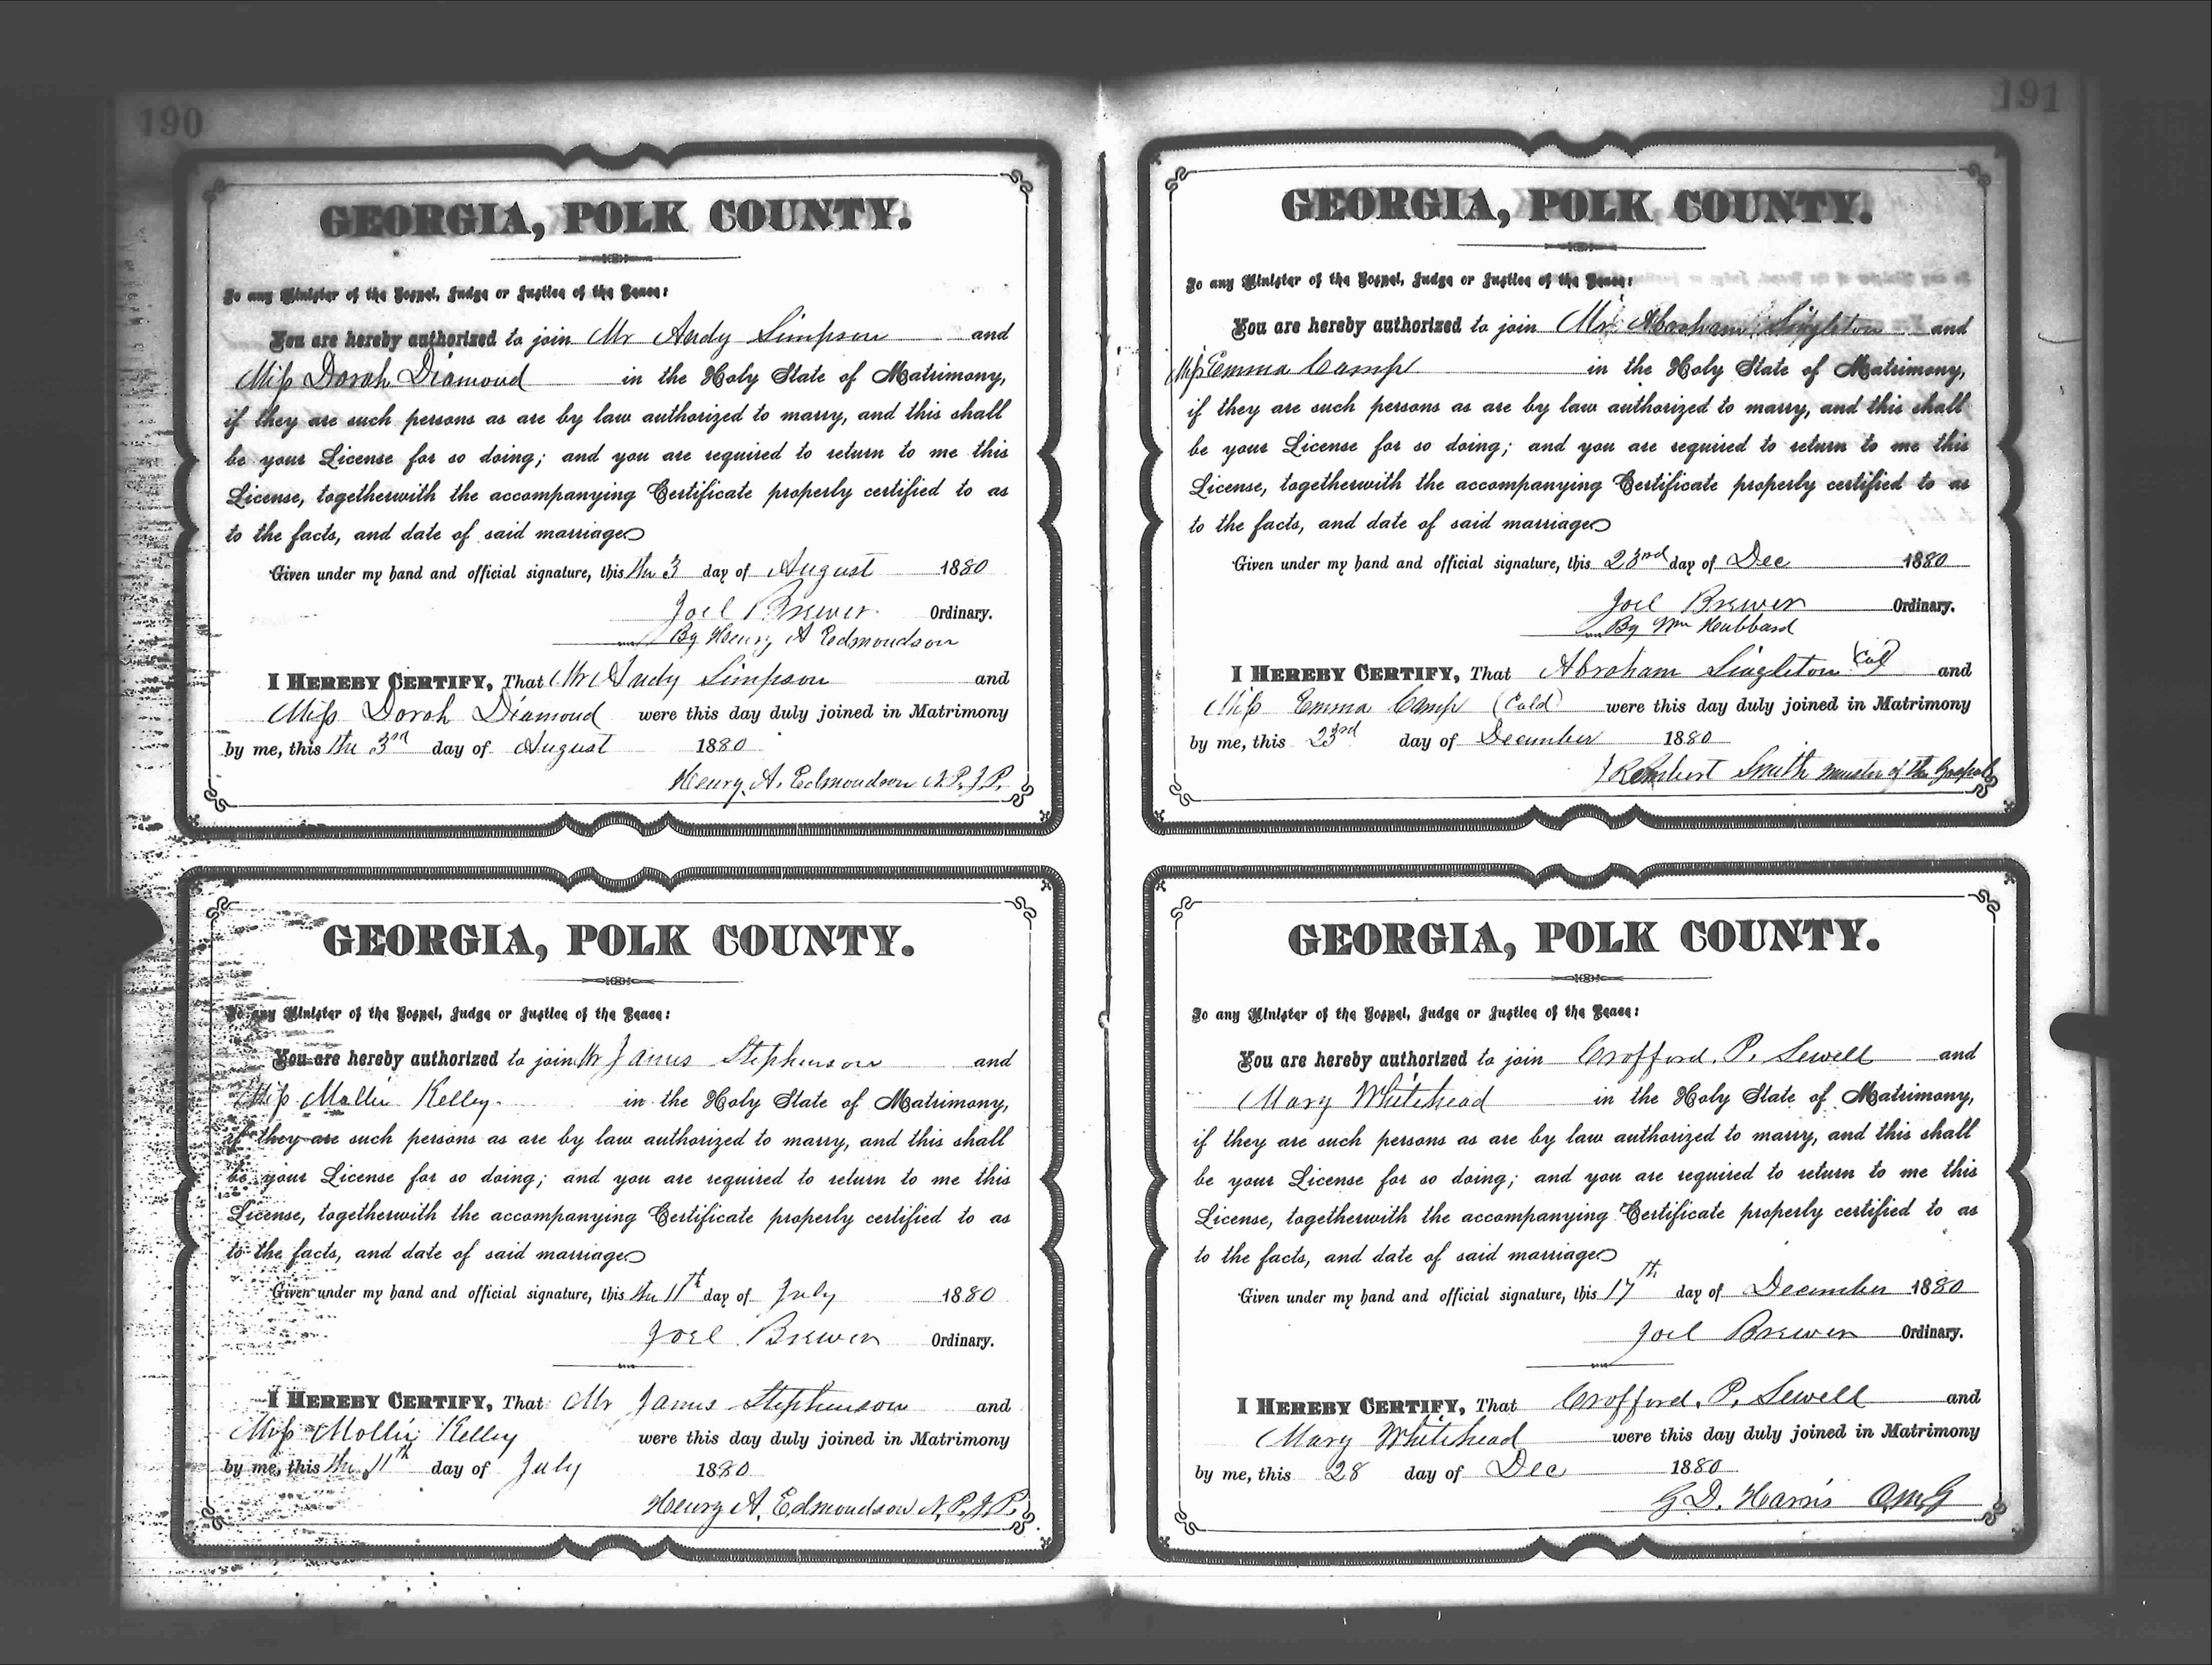 190
GEORGIA, POLK COUNTY.
To any Minister of the Gospel, Judge or Justice of the Peace:
You are hereby authorized to join Mr Andy Simpson and
Miss Dorah Diamond in the Holy State of Matrimony,
if they are such persons as are by law authorized to marry, and this shall
be your License for so doing; and you are required to return to me this
License, togetherwith the accompanying Certificate properly certified to as
to the facts, and date of said marriage
Given under my hand and official signature, this the 3 day of August 1880
Joel Brewer Ordinary.
By Henry A Edmondson
I HEREBY CERTIFY, That Mr Andy Simpson and
Miss Dorah Diamond were this day duly joined in Matrimony
by me, this the 3rd day of August 1880
Henry A. Edmondson N.P.J.P.
GEORGIA, POLK COUNTY.
To any Minister of the Gospel, Judge or Justice of the Peace:
You are hereby authorized to join Mr James Stephenson and
Miss Mollie Kelley in the Holy State of Matrimony,
if they are such persons as are by law authorized to marry, and this shall
be your License for so doing; and you are required to return to me this
License, togetherwith the accompanying Certificate properly certified to as
to the facts, and date of said marriage
Given under my hand and official signature, this the 11th day of July 1880
Joel Brewer Ordinary.
I HEREBY CERTIFY, That Mr James Stephenson and
Miss Mollie Kelley were this day duly joined in Matrimony
by me, this the 11th day of July 1880
Henry A. Edmondson N.P.J.P.
191
GEORGIA, POLK COUNTY.
To any Minister of the Gospel, Judge or Justice of the Peace:
You are hereby authorized to join Mr Abraham Singleton and
Miss Emma Camp in the Holy State of Matrimony,
if they are such persons as are by law authorized to marry, and this shall
be your License for so doing; and you are required to return to me this
License, togetherwith the accompanying Certificate properly certified to as
to the facts, and date of said marriage
Given under my hand and official signature, this 23rd day of Dec 1880
Joel Brewer Ordinary.
By Wm Hubbard
I HEREBY CERTIFY, That Abraham Singleton (Col) and
Miss Emma Camp (Cold) were this day duly joined in Matrimony
by me, this 23rd day of December 1880
J Rembert Smith Minister of the Gospel
GEORGIA, POLK COUNTY.
To any Minister of the Gospel, Judge or Justice of the Peace:
You are hereby authorized to join Crofford. P. Sewell and
Mary Whitehead in the Holy State of Matrimony,
if they are such persons as are by law authorized to marry, and this shall
be your License for so doing; and you are required to return to me this
License, togetherwith the accompanying Certificate properly certified to as
to the facts, and date of said marriage
Given under my hand and official signature, this 17th day of December 1880
Joel Brewer Ordinary.
I HEREBY CERTIFY, That Crofford. P. Sewell and
Mary Whitehead were this day duly joined in Matrimony
by me, this 28 day of Dec 1880
G D. Harris O.M.G